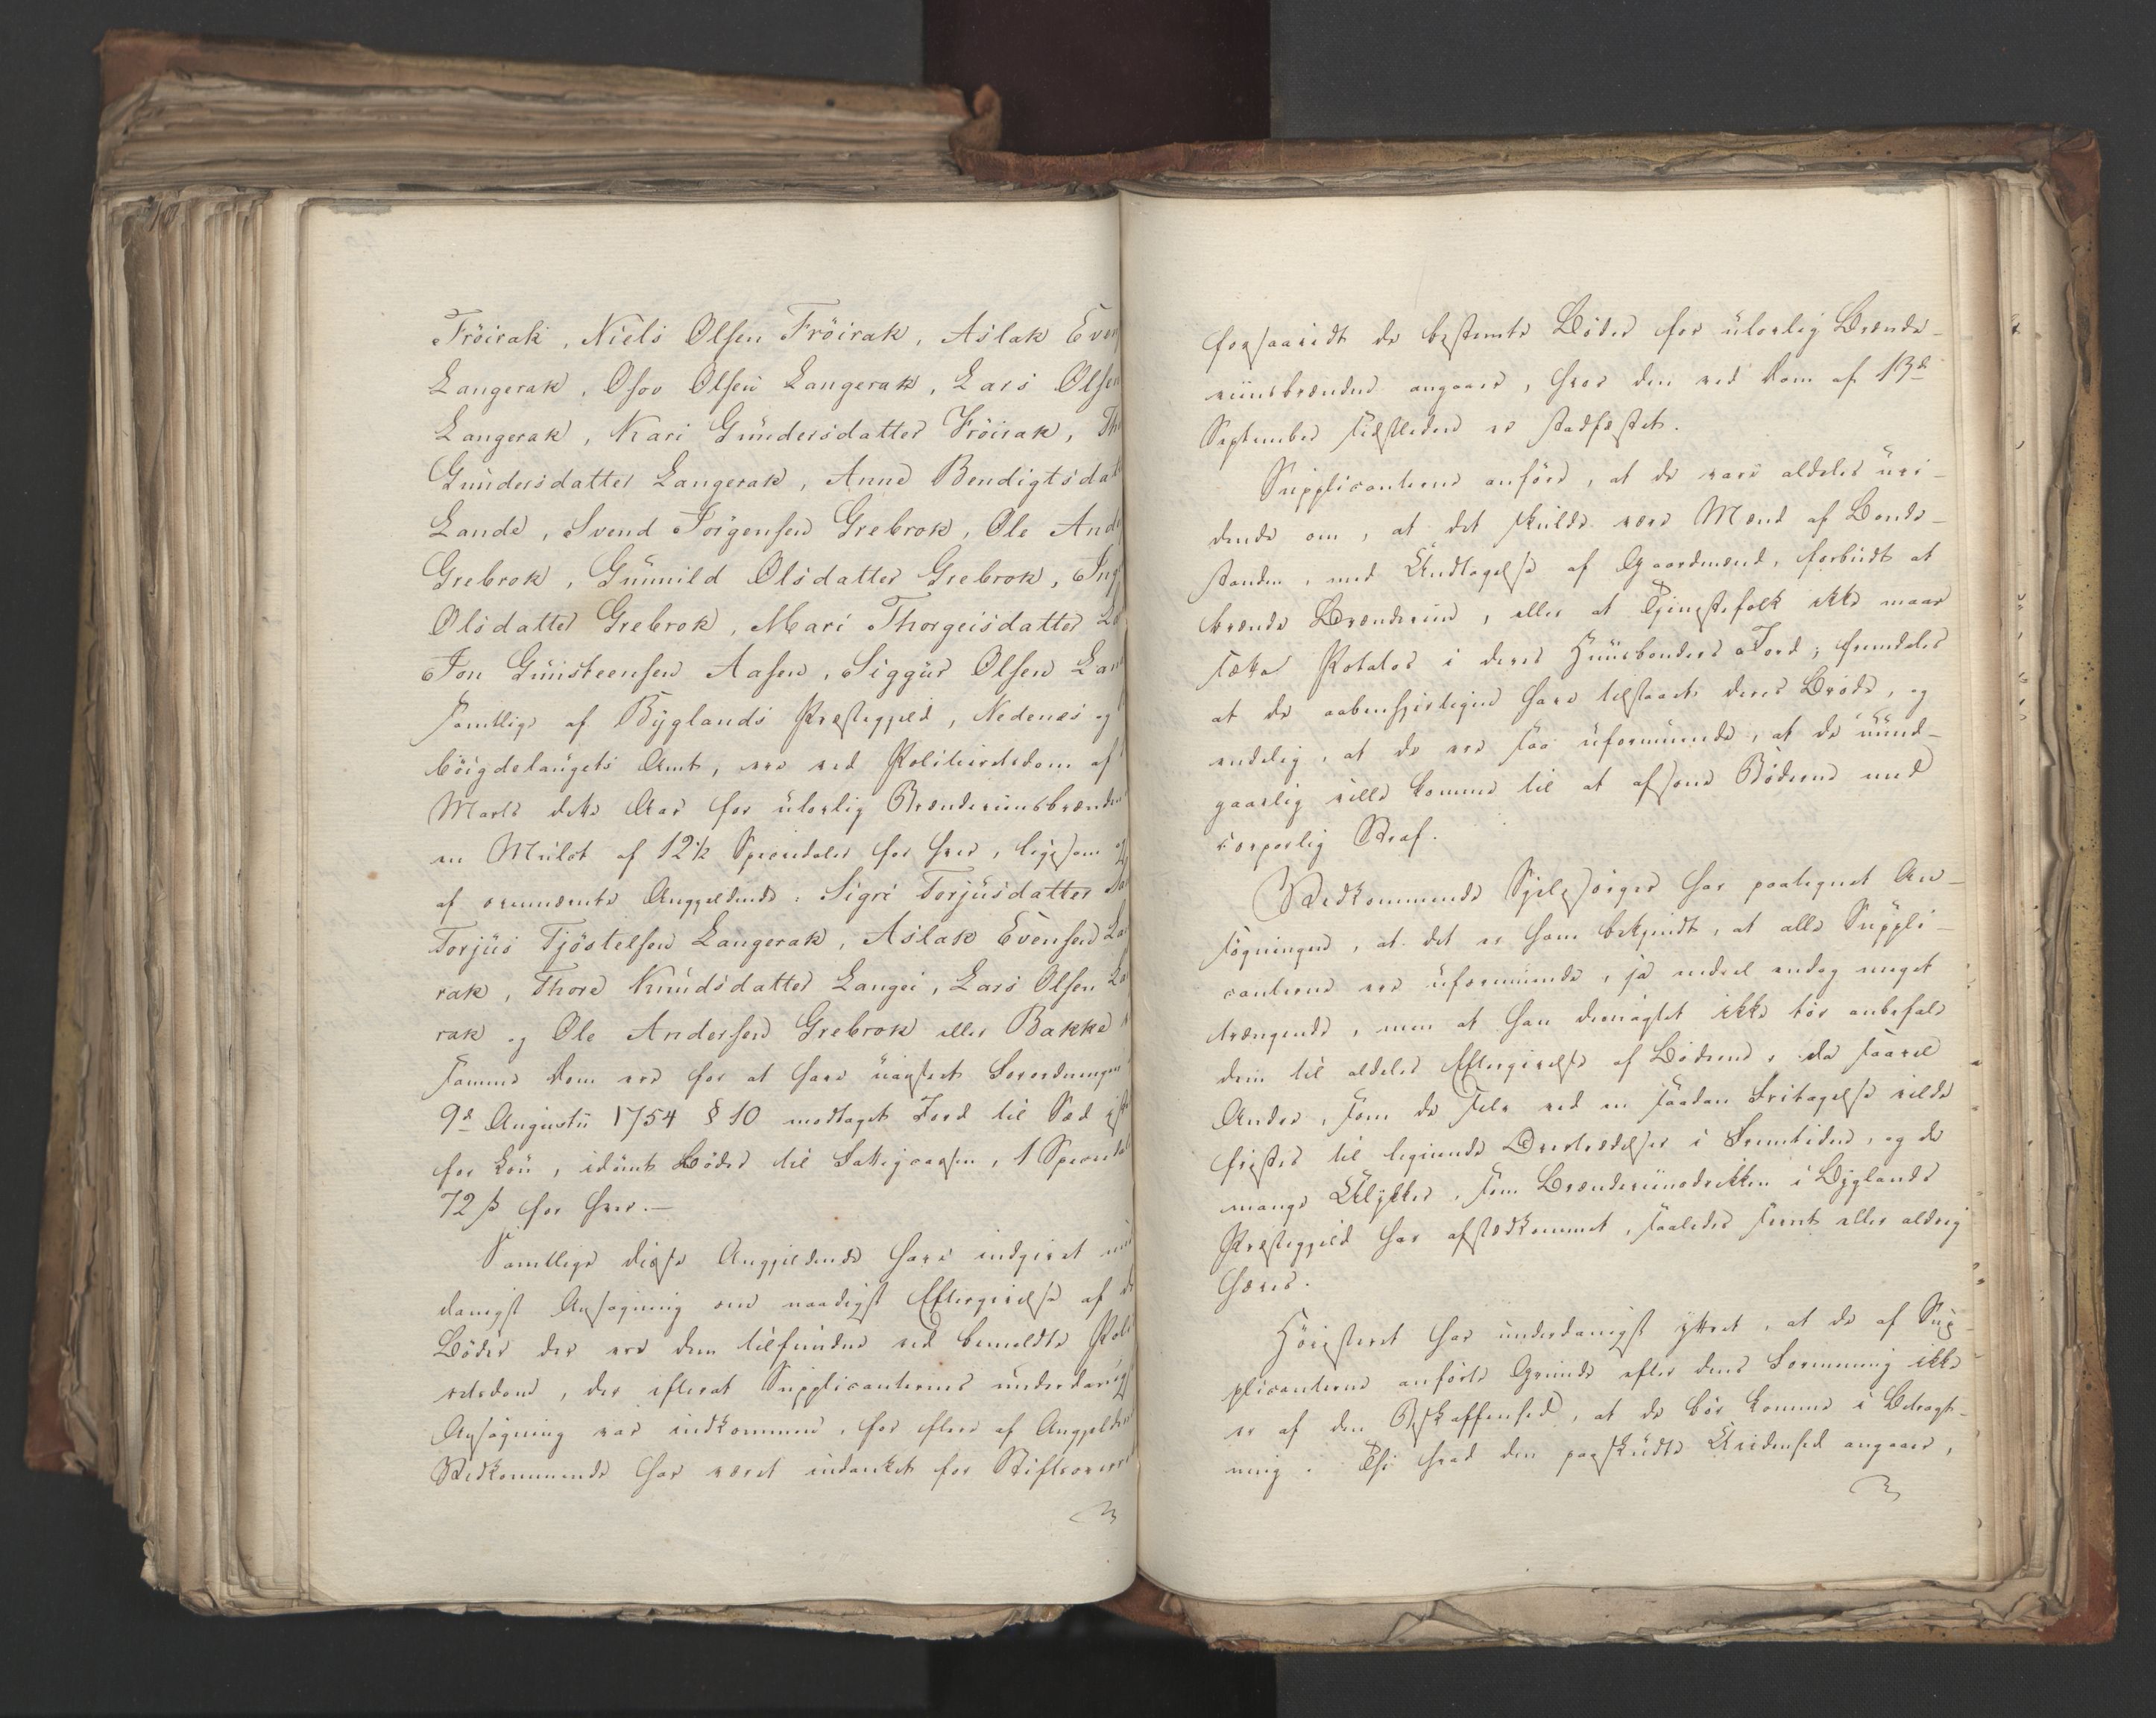 Fröirak, Niels Olsen Fröirak, Aslak Even
Langerak, Osov Olsen Langerak, Lars Olsen
Langerak, Kari Gundersdatter Fröirak, Tho
Gundersdatter Langerak, Anne Bendigtsdat
Lande, Svend Jörgensen Grebrok, Ole And
Grebrok, Gunnild Olsdatter Grebrok, Ing
Olsdatter Grebrok, Mari Thorgeisdatter La
Jon Guisteensen Aasen, Siggur Olsen Lan
samtlige af Byglands Præstegjeld, Nedenes og
böigdelaugets Amt, ere ved Politieretsdom af
Marts dette Aar for ulovlig Brændeviinsbrænden
en Mulct af 12½ Speciedaler for hver, ligesom og
af ovennævnte Angjeldende: Sigri Torjusdatter La
Torjus Tjöstelsen Langerak, Aslak Evensen La
rak, Thore Knudsdatter Langei, Lars Olsen La
rak og Ole Andersen Grebrok eller Bakke
samme Dom ere for at have uagtet Forordningen
9de Augustii 1754 § 10 modtaget Jord til Sæd ist
for Lön, idömt Böder til Fattigcassen, 1 Specied
72 ß for hver.—
Samtlige disse Angjeldende have indgivet un
danigst Ansögning om naadigst Eftergivelse af de
Böder der ere dem tilfundne ved bemeldte Poli
retsdom, der efterat Supplicanternes underdanig
Ansögning var indkommen, for flere af Angjelden
Vedkommende har været indanket for Stiftsoverre
forsaavidt de bestemte Böder for ulovlig Brænde-
viinsbrænden angaaer, hvor den ved Dom af 13de
September sidstleden er stadfæstet.
Supplicanterne anföre, at de vare aldeles uvi-
dende om, at det skulde være Mænd af Bonde-
standen, med Undtagelse af Gaardmænd, forbudt at
brænde Brændeviin, eller at Tjenestefolk ikke maae
sætte Potatos i deres Huusbonders Jord; fremdeles
at de aabenhjertigen have tilstaaet deres Bröde, og
endelig, at de ere saa uformuende, at de uund-
gaaelig ville komme til at afsone Böderne med
corporlig Straf.
Vedkommende Sjelesörger har paategnet An-
sögningen, at det er ham bekjendt, at alle Suppli-
canterne ere uformuende, ja endeel endog meget
trængende, men at han desuagtet ikke tör anbefale
dem til aldeles Eftergivelse af Böderne, da saavel
Andre, som de selv ved en saadan Fritagelse vilde
fristes til lignende Overtrædelser i Fremtiden, og de
mange Ulykker, som Brændeviinsdrikken i Byglands
Præstegjeld har afstedkommet, saaledes seent eller aldrig
hæves.
Höiesteret har underdanigst yttret, at de af Sup-
plicanterne anförte Grunde efter dens Formening ikke
er af den Beskaffenhed, at de bör komme i Betragt-
ning. Thi hvad den paaskudte Uvidenhed angaaer,